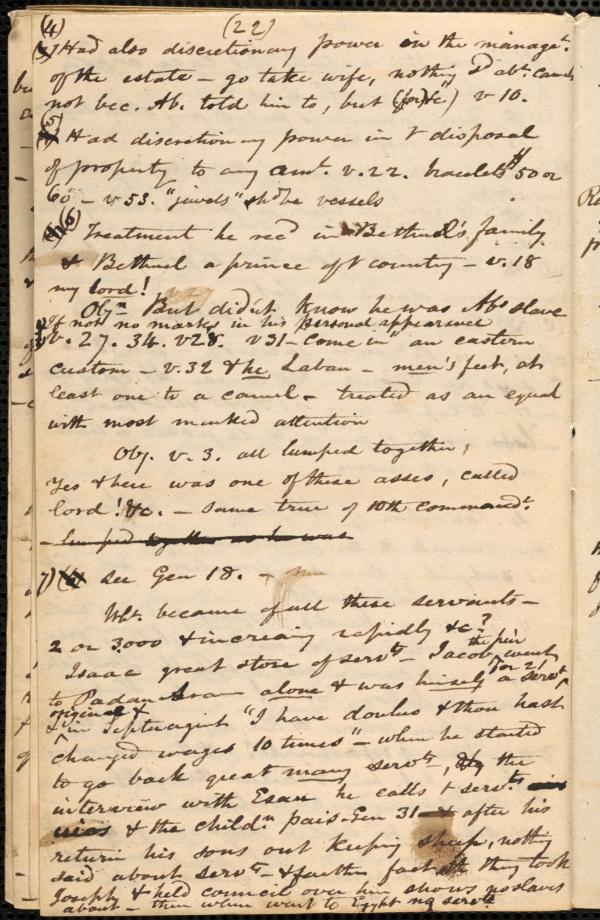 (22)
(4) Had also discretionary power in the managet.
of the estate – go take wife, nothing sd abt. camels
not bec. Ab. told him to, but (for &c) v 10.
(5) Had discretionary power in t disposal
of property to any amt. v. 22. bracelets $50 or
60 – v 53. "jewels" shd be vessels
(6) Treatment he recd in Bethuel's family
& Bethuel a prince of t country – v. 18
my lord!
Objn But didn't know he was Abs slave
If not no marks in his personal appearance
v. 27. 34. v 28. v 31 – come in" an eastern
custom – v. 32 & he, Laban – men's feet, at
least one to a camel – treated as an equal
with most marked attention
Obj. v. 3. all lumped together,
Yes & here was one of these asses, called
lord! &c. – same true of 10th commandt.
– lumped together as he was
7) see Gen 18. –
Wht. became of all these servants –
2 or 3000 & increasing rapidly &c?
Isaac great store of servts – Jacob went
to Padan Aram alone & was himself a servt
original &
in Septuagint "I have doulos & thou hast
changed wages 10 times" – when he started
to go back great many servts, the
interview with Esau he calls t servts
& the childn pais – Gen 31 & after his
return his sons out keeping sheep, nothing
said about servts – & farther fact they took
Joseph & held council over him shows no slaves
about – then when went to Egypt no servts